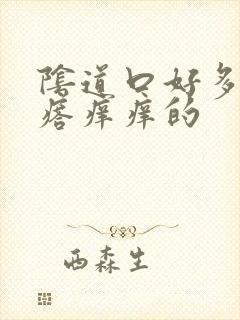 陰道口好多
痞痒痒的
西森生